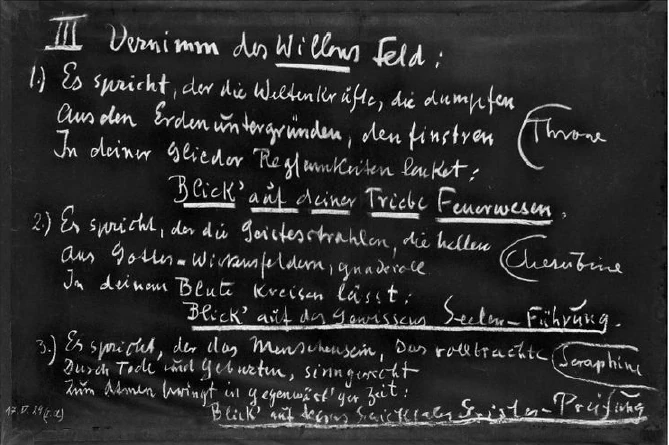 III Vernimm des Willens Feld:
1.) Es spricht, der die Weltenkräfte, die dumpfen
Aus den Erdenuntergründen, den finstren
Throne
In deiner Glieder Regsamkeiten lenket:
Blick' auf deiner Triebe Feuerwesen.
2.) Es spricht, der die Geistesstrahlen, die hellen
Aus Gottes-Wirkensfeldern, gnadevoll
Cherubine
In deinem Blute kreisen lässt:
Blick' auf des Gewissens Seelen-Führung.
3.) Es spricht, der das Menschensein, das vollbrachte
Seraphine
Durch Tode und Geburten, sinngerecht
Zum Atmen bringt in gegenwärt'ger Zeit:
Blick' auf deines Schicksales Geistes-Prüfung